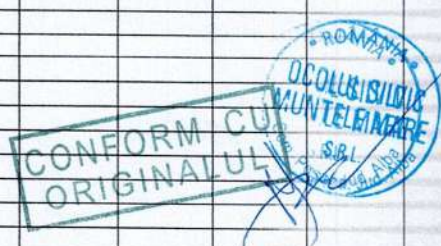 CONFORM CU
ORIGINALUL
ROMÂNIA
OCOLUL SILVIC
MUNTELE MARE
S.R.L.
Alba